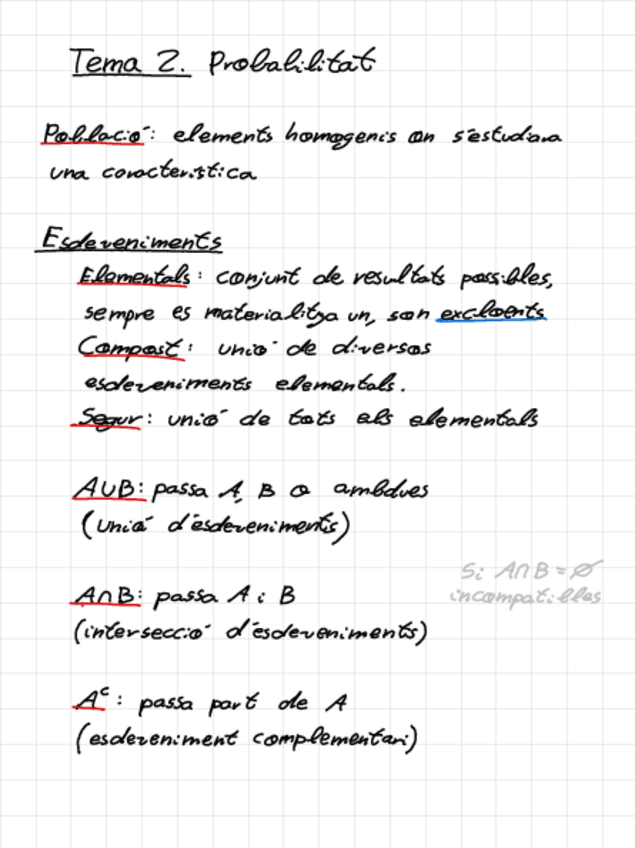 Tema 2. Probabilitat
Població: elements homogenis on s'estudiara
una caracteristica
Esdeveniments
Elementals: conjunt de resultats possibles,
sempre es materialitza un, son excloents
Compost: unió de diversos
esdeveniments elementals.
Segur: unió de tots els elementals
A∪B: passa A, B o ambdues
(unió d'esdeveniments)
Si A∩B = ∅
incompatibles
A∩B: passa A i B
(intersecció d'esdeveniments)
Aᶜ: passa part de A
(esdeveniment complementari)